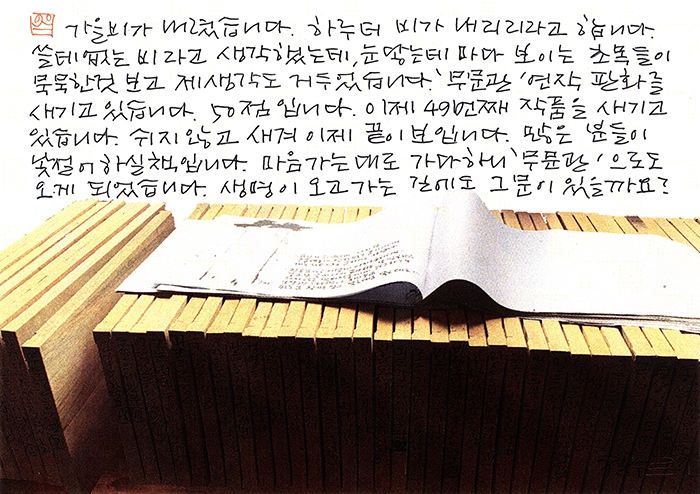 가을비가 내렸습니다. 하루 더 비가 내리리라고 합니다.
쓸데없는 비라고 생각하였는데, 눈 닿는데 마다 보이는 초목들이
묵묵한것 보고 제생각도 거두었습니다. '무문관' 연작 판화를
새기고 있습니다. 50점 입니다. 이제 49번째 작품을 새기고
있습니다. 쉬지않고 새겨 이제 끝이 보입니다. 많은 분들이
낯설어하실 책입니다. 마음가는대로 가다하니 '무문관'으로도
오게 되었습니다. 생명이 오고가는 길에도 그 문이 있을까요?